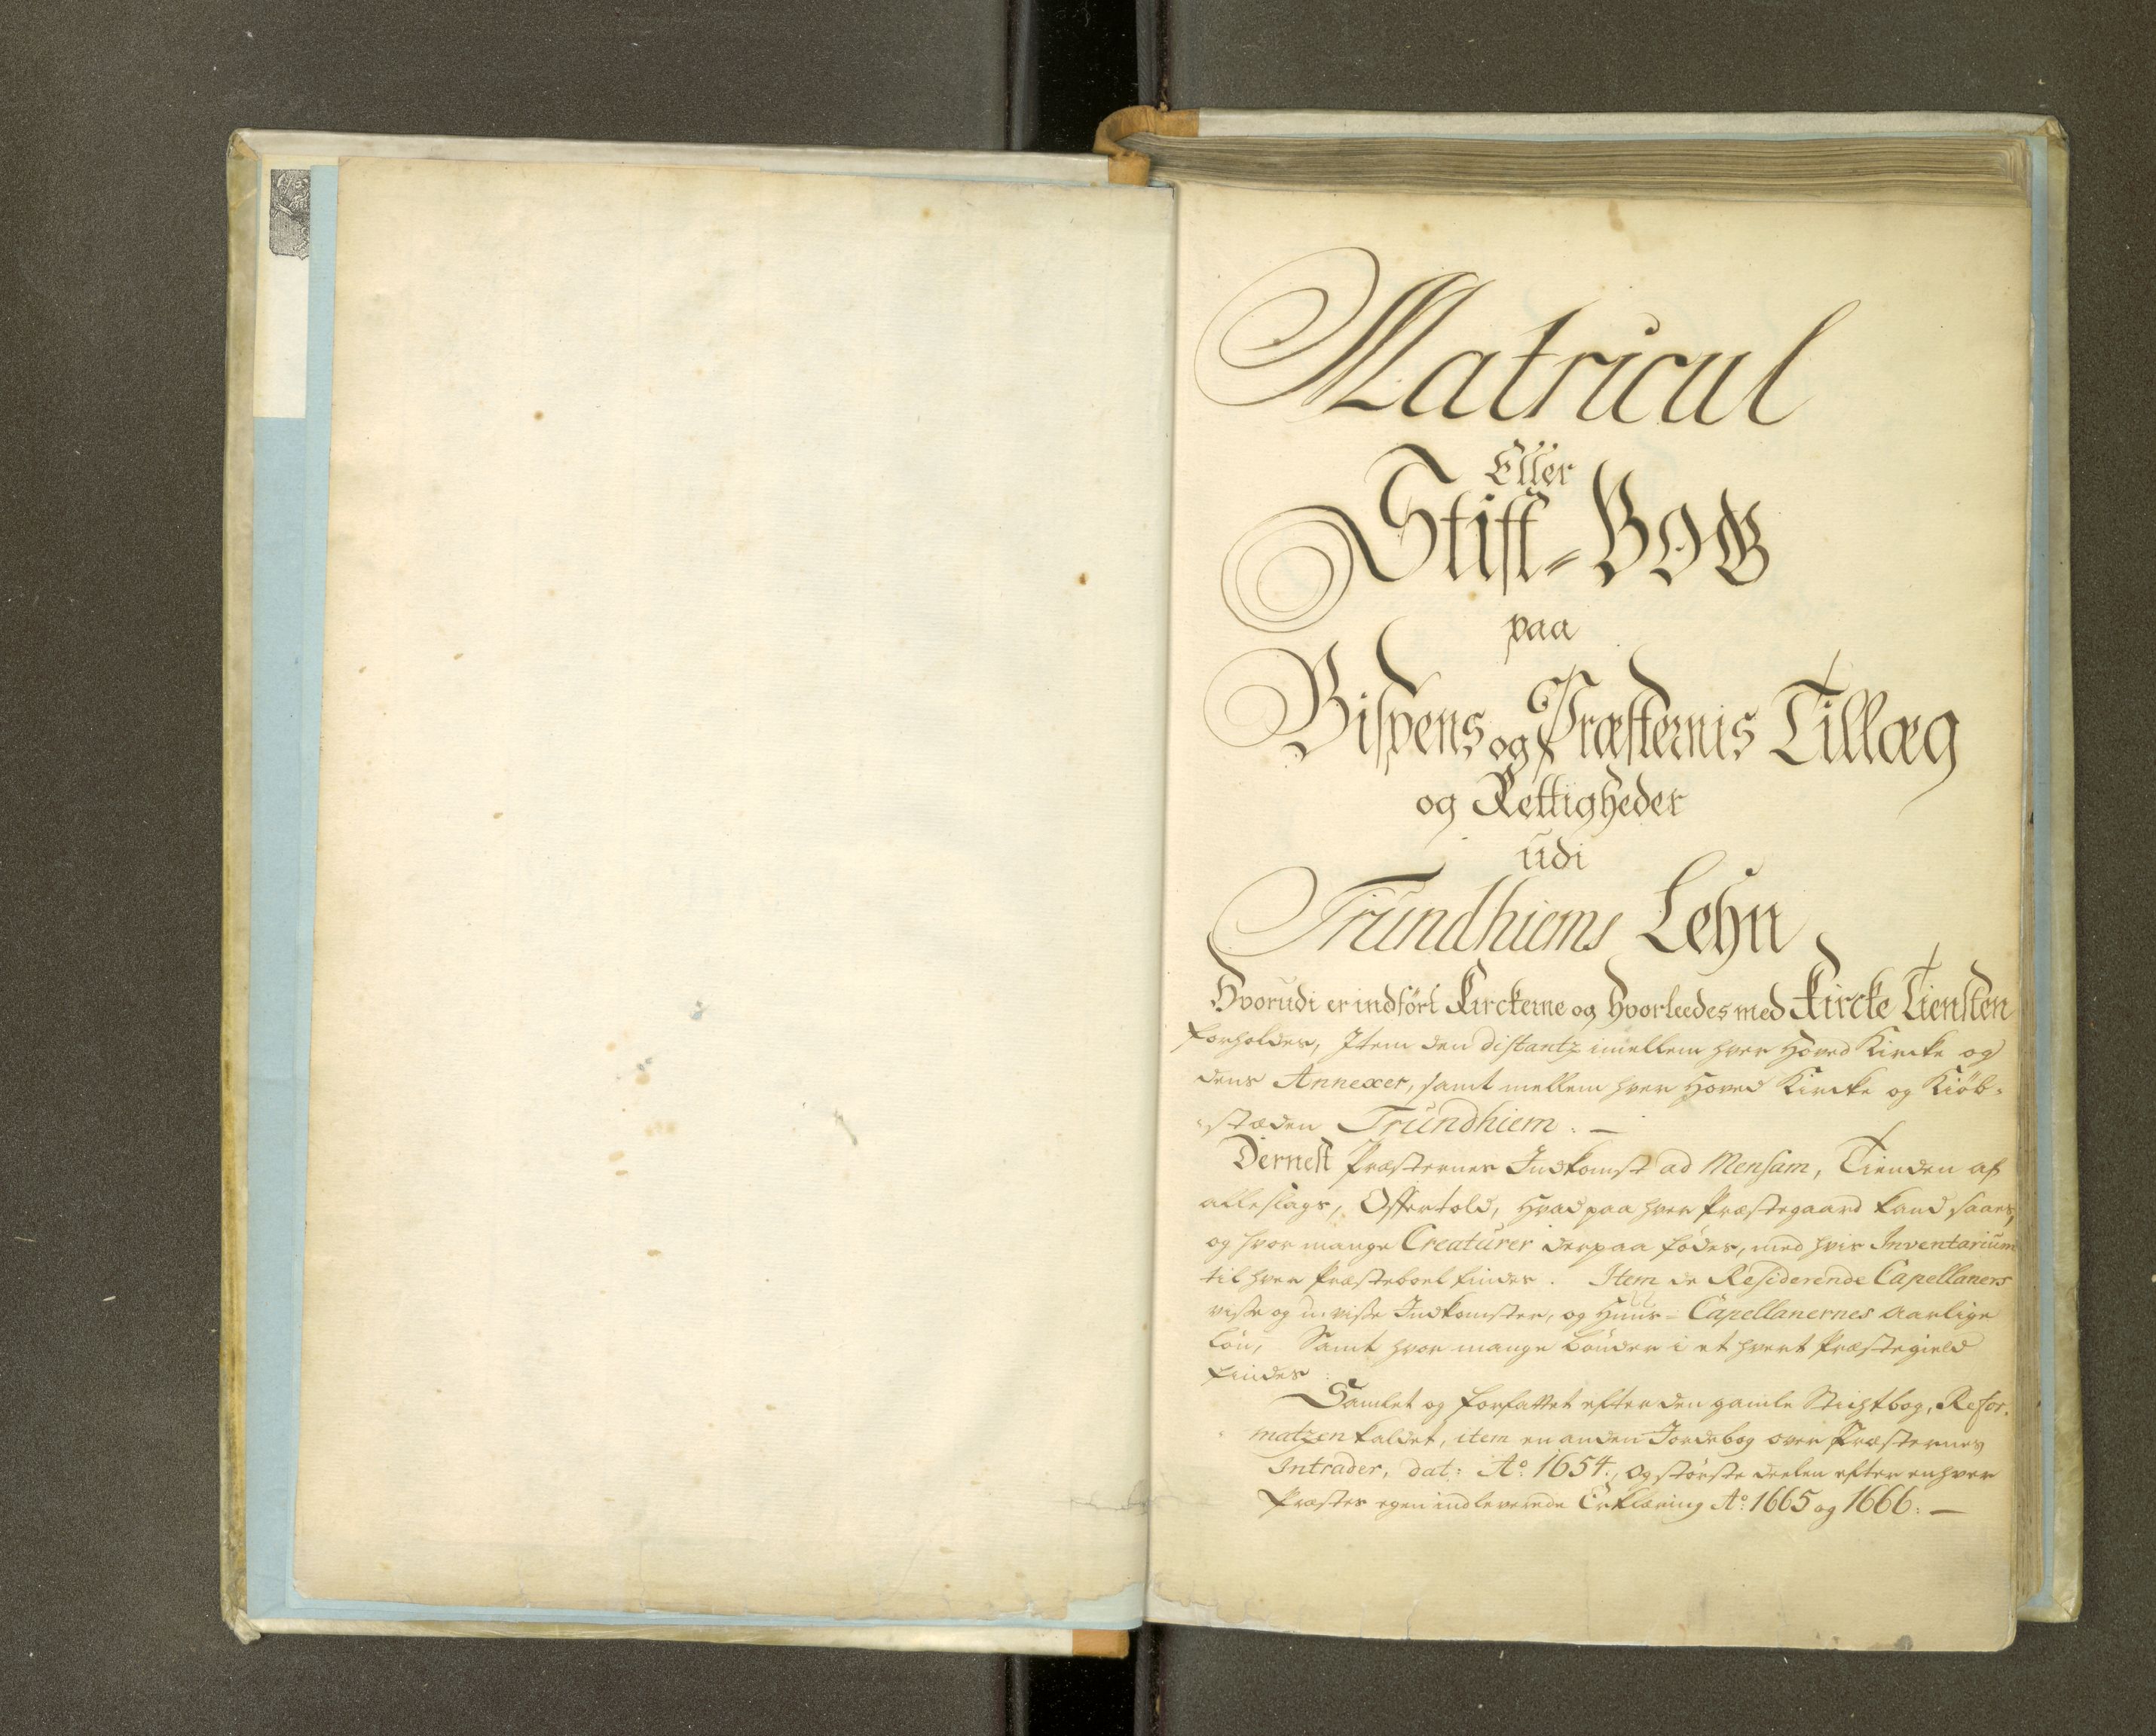 Matricul
Eller
Stift-Bog
paa
Bispens og Præsternis Tillæg
og Rettigheder
udi
Trundhiems Lehn
Hvorudi er indført Kirckerne og hvorleedes med Kircke Tiensten
forholdes, Item den distantz imellem hver Hoved Kircke og
dens Annexer, samt mellem hver Hoved Kircke og Kiøb-
stæden Trundhiem. —
Dernest Præsternes Indkomst ad Mensam, Tienden af
alleslags, Offertold, Hvad paa hver Præstegaard kand saaes,
og hvor mange Creaturer derpaa fødes, med hvis Inventarium
til hver Præsteboel findes. Item de Residerende Capellaners
visse og uvisse Indkomster, og Huus-Capellanernes Aarlige
Løn, Samt hvor mange bønder i et hvert Præstegield
findes
Samlet og forfattet efter den gamle Stichtbog, Refor-
matzen kaldet, item en anden Jordebog over Præsternes
Intrader, dat: Ao. 1654., og største deelen efter enhver
Præstes egen indleverede Erklæring Ao: 1665 og 1666. —